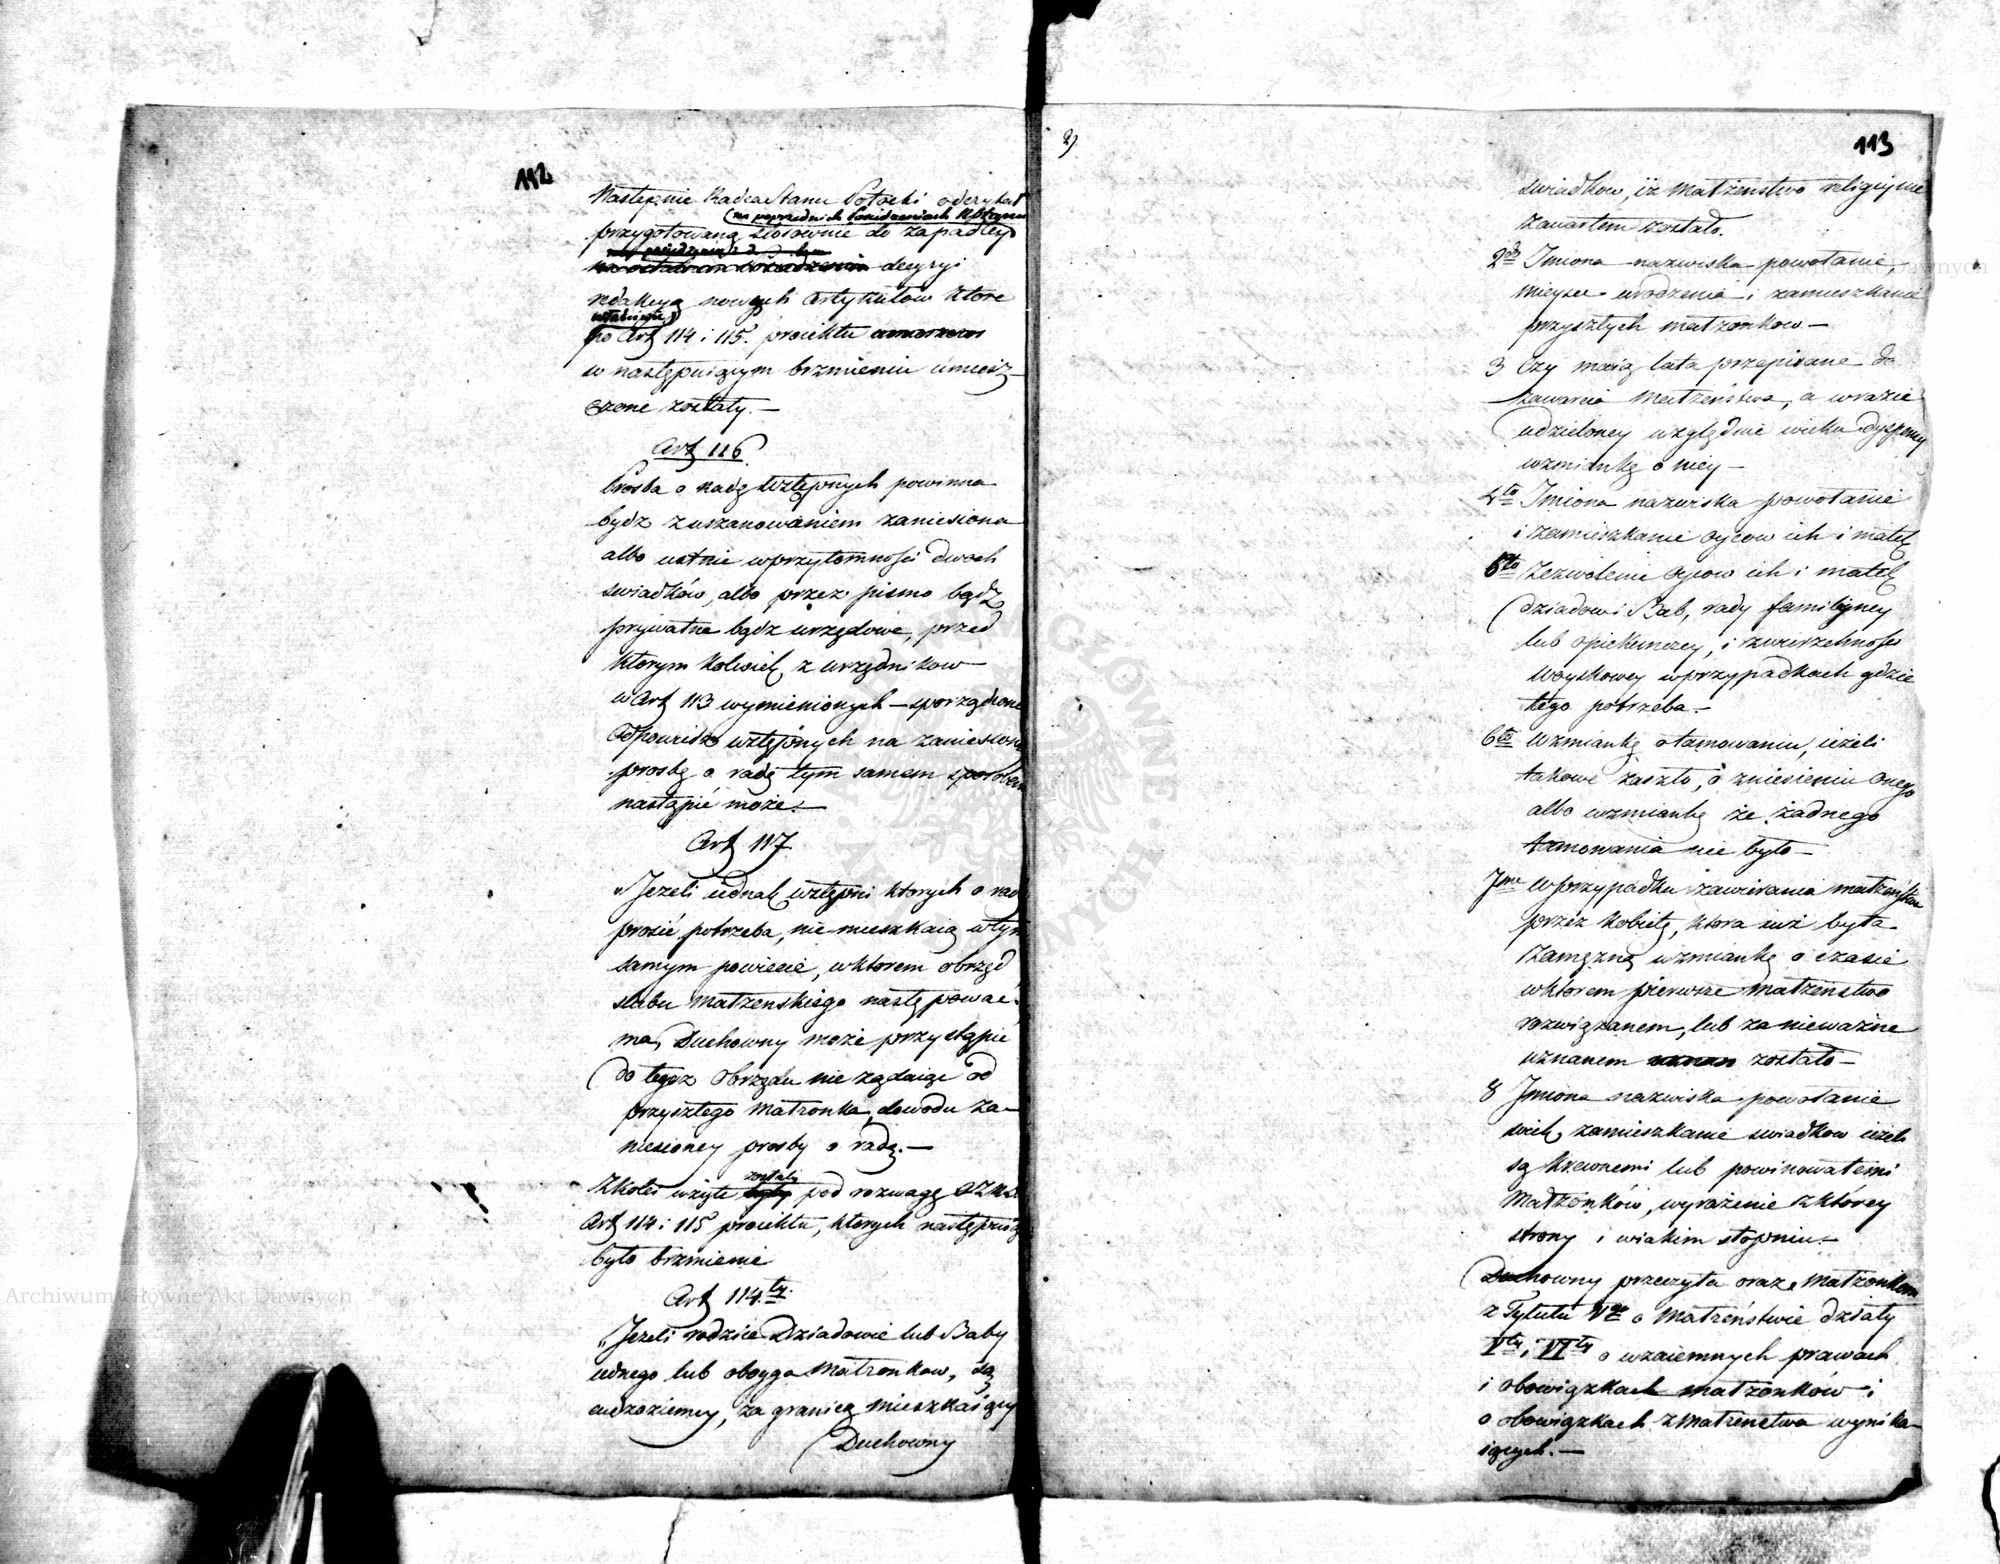 112
Następnie Radca Stanu Potocki odczytał
(na poprzednich Posiedzeniach
przygotowaną stosownie do zapadłey
decyzyi
redakcyą nowych Artykułów które
właściwie)
po Art 114 i 115. proiektu
w następuiącym brzmieniu umiesz-
czone zostały. —
Art 116.
Prosba o radę wstępnych powinna
bydz z uszanowaniem zaniesiona
albo ustnie w przytomności dwóch
swiadków, albo przez pismo bądz
prywatne bądz urzędowe, przed
którym kolwiek z urzędnikow
w Art 113 wymienionych — sporządzone
Odpowiedz wstępnych na zaniesioną
prosbę o radę tym samem sposobem
nastąpić może. —
Art 117.
„Jeżeli iednak wstępni ktorych o radę
prosić potrzeba, nie mieszkaią w tym
samym powiecie, w ktorem obrzęd
slubu Małzenskiego następować
ma, Duchowny może przystąpić
do tegoż obrzędu nie żądaiąc od
przyszłego Małzonka, dowodu za-
niesioney prosby o radę. —
zostały
Z kolei wzięte były pod rozwagę
Art 114 i 115 proiektu, ktorych następuiące
było brzmienie
Art 114.ty
„Jezeli rodzice Dziadowie lub Baby
iednego lub oboyga Małzonkow, są
cudzoziemcy, za granicą mieszkaiący
Duchowny
2)
113
swiadkow, iż Małżenstwo religiynie
zawartem zostało.
2do Imiona nazwiska powołanie,
mieysce urodzenia i zamieszkanie
przyszłych małzonkow —
3 Czy maią lata przepisane do
zawarcia Małżeństwa, a w razie
udzieloney względnie wieku dyspensy
wzmiankę o niey —
4to Imiona nazwiska powołanie
i zamieszkanie Oyców ich i matek
5to Zezwolenie Oyców ich i matek
dziadow i Bab, rady familiyney
lub opiekunczey, i zwierzchności
woyskowey w przypadkach gdzie
tego potrzeba. —
6to Wzmiankę o tamowaniu, ieżeli
takowe zaszło, o zniesieniu onego
albo wzmiankę że żadnego
tamowania nie było —
7me W przypadku zawierania małżeństwa
przez kobietę, ktora iuż była
zamężną wzmiankę o czasie
w ktorem pierwsze Małżenstwo
rozwiązanem, lub za nieważne
uznanem zostało —
8 Imiona nazwiska powołanie
wiek, zamieszkanie swiadkow ieżeli
są krewnemi lub powinowatemi
Małzonków, wyrażenie z ktorey
strony i w iakim stopniu. —
Duchowny przeczyta oraz Małżonkom
z Tytułu Vgo o Małżeństwie działy
Vty i VIty o wzaiemnych prawach
i obowiązkach małzonków i
o obowiązkach z Małzenstwa wynika-
iących. —
Archiwum Główne Akt Dawnych